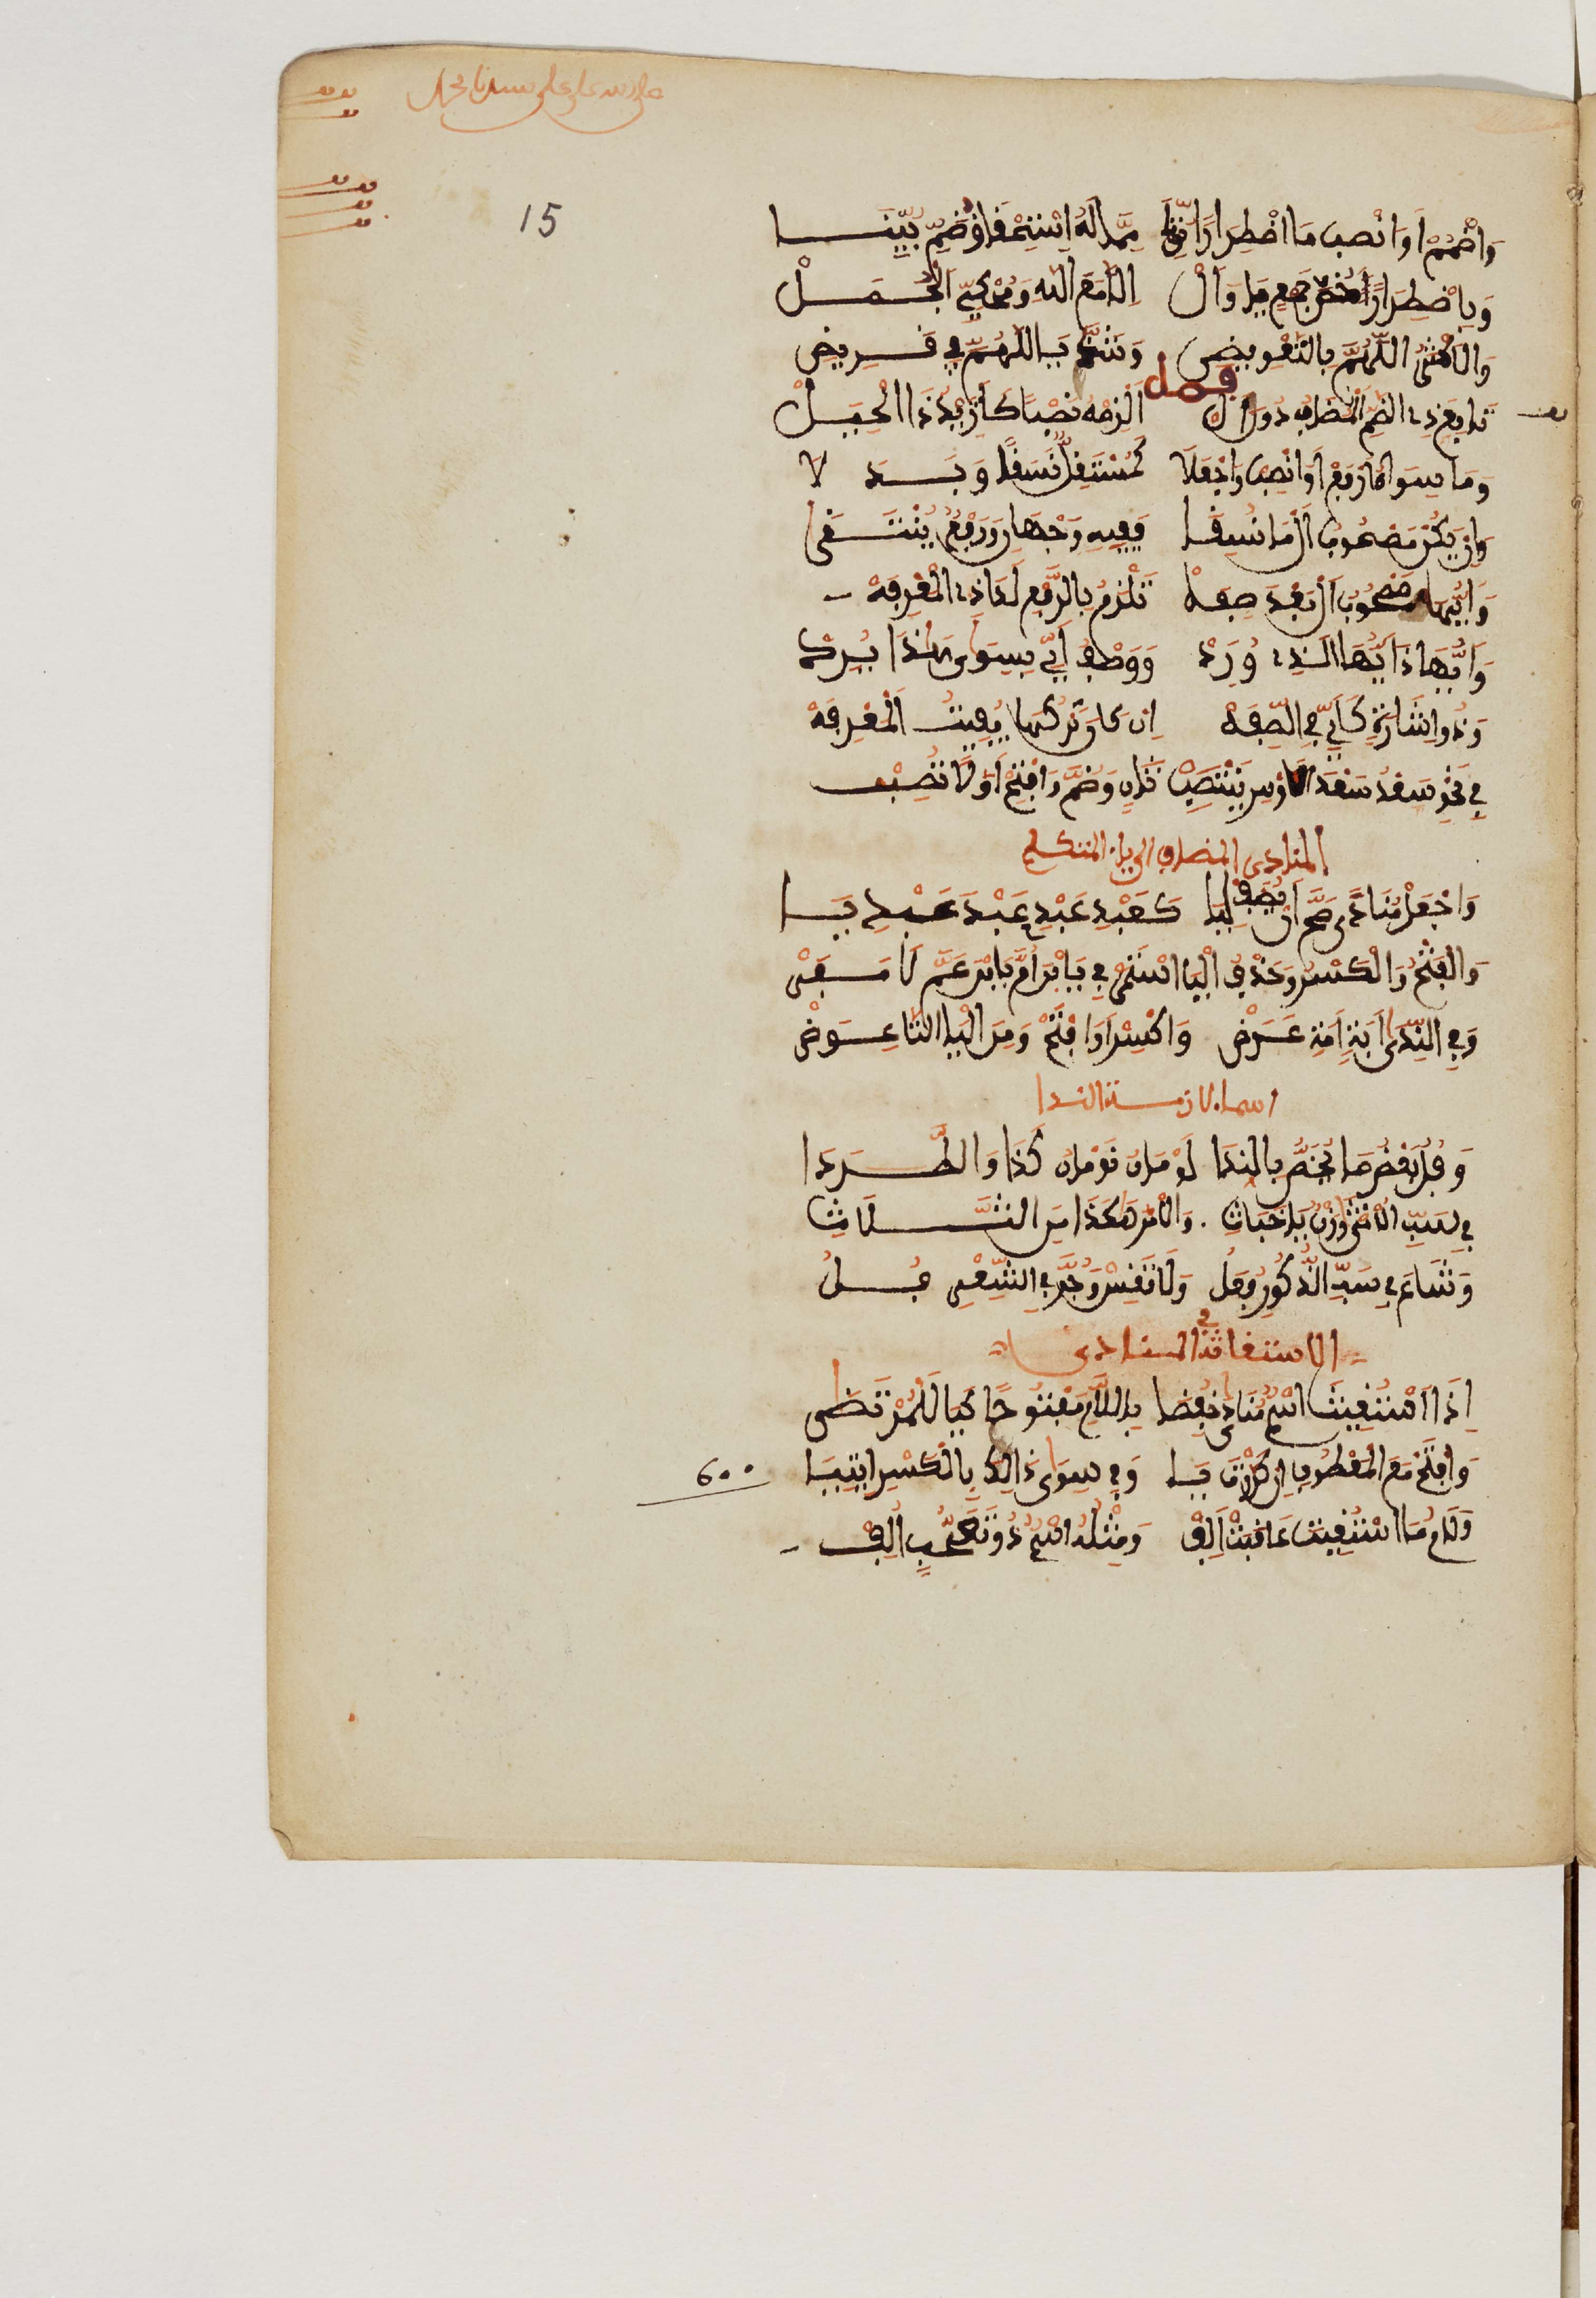 صلى الله على سيدنا محمد
15
وَاضْمُمْ اَوِ انْصِب مَا اضْطِرَارًا نُوِّنَا مِمَّا لَهُ اِسْتِحْقَاقُ ضَمٍّ بُيِّنَا
وَبِاضْطِرَارٍ خُصَّ جَمْعُ يَا وَالْ اِلَّا مَعَ اللهِ وَمَحْكِيِّ الْجُمَلْ
وَالَاكْثَرُ اللَّهُمَّ بِالتَّعْوِيضِ وَشَذَّ يَا اللَّهُمَّ فِي قَرِيضِ
فصل
تَابِعَ ذِي الضَّمِّ الْمُضَافَ دُونَ الْ اَلْزِمْهُ نَصْبًا كَأَزَيْدُ ذَا الْحِيَلْ
وَمَا سِوَاهُ ارْفَعْ اَوِ انْصِبْ وَاجْعَلَا كَمُسْتَقِلٍّ نَسَقًا وَبَدَلَا
وَاِنْ يَكُنْ مَصْحُوبَ اَلْ مَا نُسِقَا فَفِيهِ وَجْهَانِ وَرَفْعٌ يُنْتَقَى
وَاَيُّهَا مَصْحُوبَ اَلْ بَعْدَ صِفَهْ تَلْزَمُ بِالرَّفْعِ لَدَا ذِي الْمَعْرِفَهْ
وَاَيُّهَاذَا اَيُّهَا الَّذِي وَرَدْ وَوَصْفُ اَيٍّ بِسِوَى هَذَا يُرَدْ
وَذُو اِشَارَةٍ كَاَيٍّ فِي الصِّفَهْ اِن كَانَ تَرْكُهَا يُفِيتُ الْمَعْرِفَهْ
فِي نَحْوِ سَعْدُ سَعْدَ الَاوْسِ يَنْتَصِبْ ثَانٍ وَضُمَّ وَافْتَحْ اَوَّلًا تُصِبْ
المنادى المضاف الى ياء المتكلم
وَاجْعَلْ مُنَادًى صَحَّ اَنْ يُضَفْ لِيَا كَعَبْدِ عَبْدِي عَبْدَ عَبْدَا عَبْدِيَا
وَالفَتْحُ وَالْكَسْرُ وَحَذْفُ الْيَا اسْتَمَرْ فِي يَا بْنَ اُمَّ يَا بْنَ عَمَّ لَا مَفَرْ
وَفِي النِّدَا اَبَتِ اُمَّتِ عَرَضْ وَاكْسِرْ اَوِ افْتَحْ وَمِنَ الْيَا التَّا عِوَضْ
اسماء لازمت الندا
وَفُلُ بَعْضُ مَا يُخَصُّ بِالنِّدَا لُؤْمَانُ نَوْمَانُ كَذَا وَاطَّرَدَا
فِي سَبِّ الُانْثَى وَزْنُ يَا خَبَاثِ وَالَامْرُ هَكَذَا مِنَ الثُّلَاثِي
وَشَاعَ فِي سَبِّ الذُّكُورِ فُعَلُ وَلَا تَقِسْ وَجُرَّ فِي الشِّعْرِ فُلُ
الاستغاثة في المنادى
اِذَا اسْتُغِيثَ اسْمٌ مُنَادًى خُفِضَا بِاللَّامِ مَفْتُوحًا كَيَا لَلْمُرْتَضَى
وَافْتَحْ مَعَ الْمَعْطُوفِ اِنْ كَرَّرْتَ يَا وَفِي سِوَى ذَالِكَ بِالْكَسْرِ ايتِيَا
600
وَلَامُ مَا اسْتُغِيثَ عَاقَبَتْ اَلِفْ وَمِثْلُهُ اسْمٌ ذُو تَعَجُّبٍ اُلِفْ